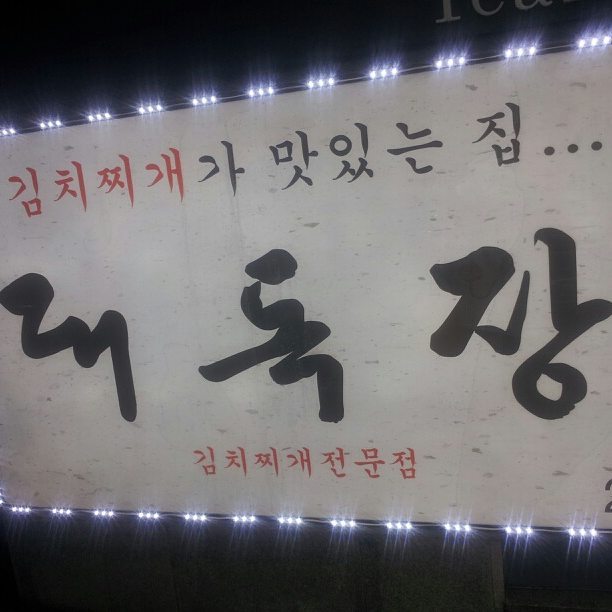 김치찌개가 맛있는 집...
대독장
김치찌개전문점